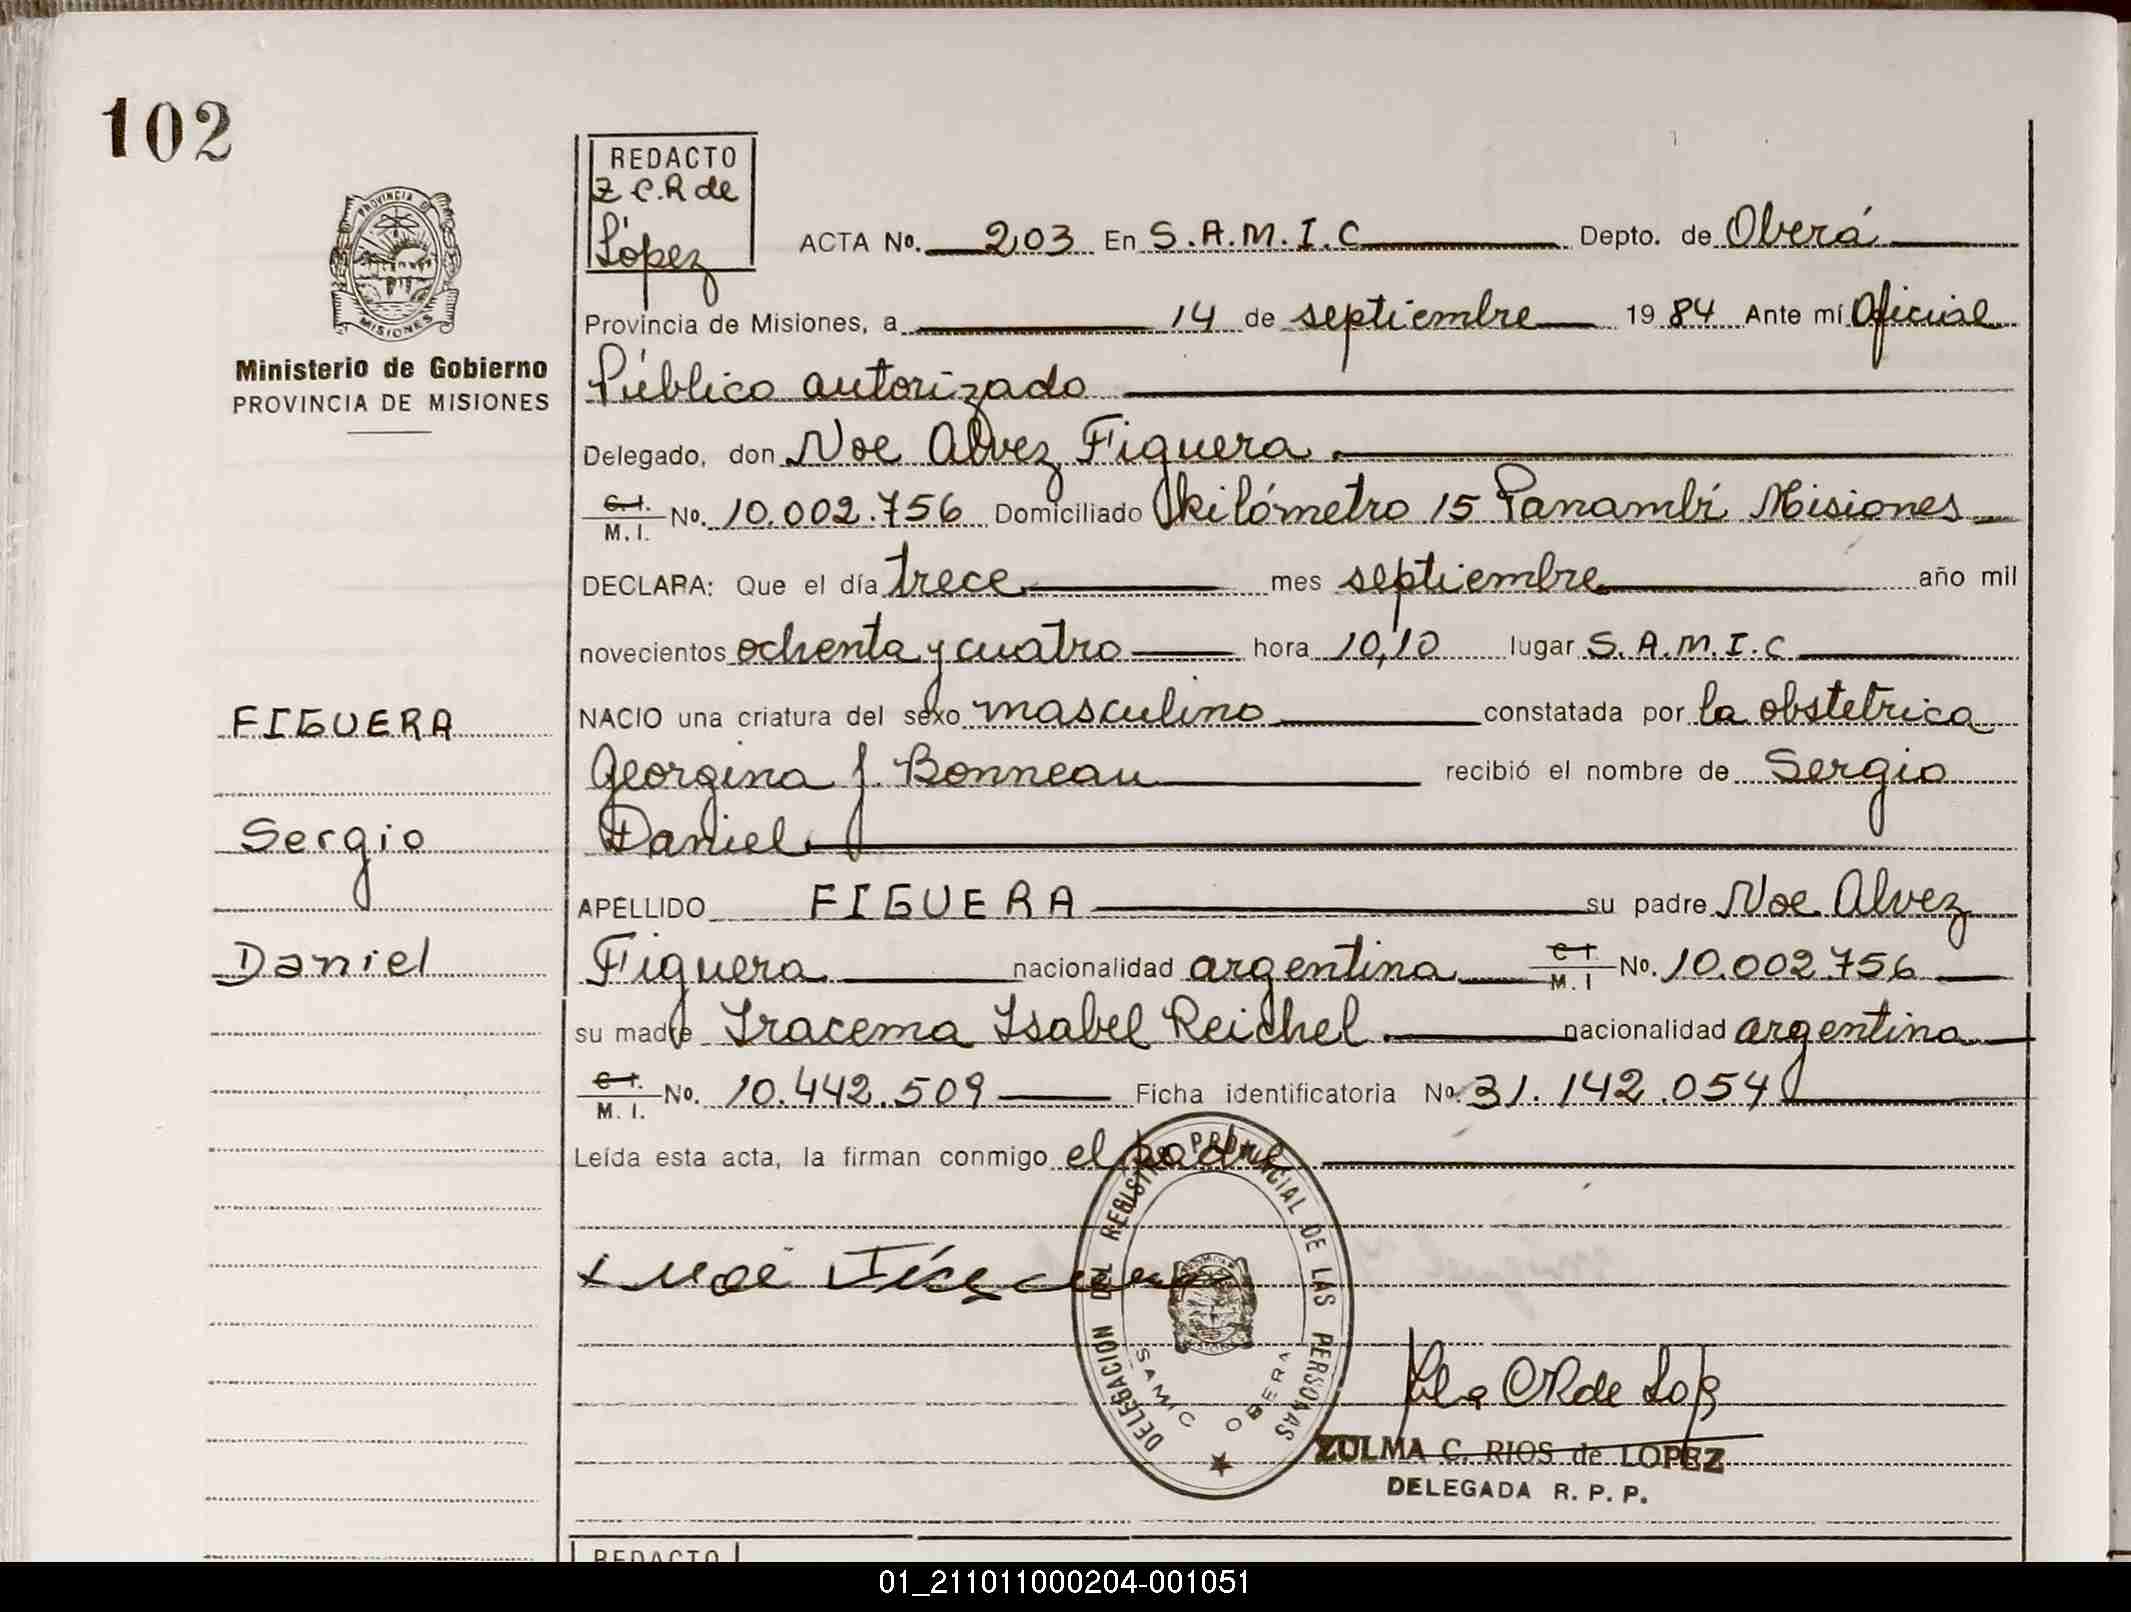 102
REDACTO
Z C.R de
López
ACTA No. 203 En S.A.M.I.C Depto. de Oberá
PROVINCIA D
MISIONES
Provincia de Misiones, a 14 de septiembre 1984 Ante mí Oficial
Ministerio de Gobierno
PROVINCIA DE MISIONES
Público autorizado
Delegado, don Noe Alvez Figuera
C.I.
M.I. No. 10.002.756 Domiciliado kilómetro 15 Panambí Misiones
DECLARA: Que el día trece mes septiembre año mil
novecientos ochenta y cuatro hora 10,10 lugar S.A.M.I.C
FIGUERA
NACIO una criatura del sexo masculino constatada por la obstetrica
Georgina J. Bonneau recibió el nombre de Sergio
Sergio
Daniel
APELLIDO FIGUERA su padre Noe Alvez
Daniel
Figuera nacionalidad argentina C I. M. I No. 10.002756
su madre Iracema Isabel Reichel nacionalidad argentina
C I. M. I. No. 10.442.509 Ficha identificatoria No. 31.142.054
Leída esta acta, la firman conmigo el padre
x Noé Figuera
DELEGACION DEL REGISTRO PROVINCIAL DE LAS PERSONAS
SAMIC OBERA
ZULMA C. RIOS de LOPEZ
DELEGADA R. P. P.
REDACTO
01_211011000204-001051